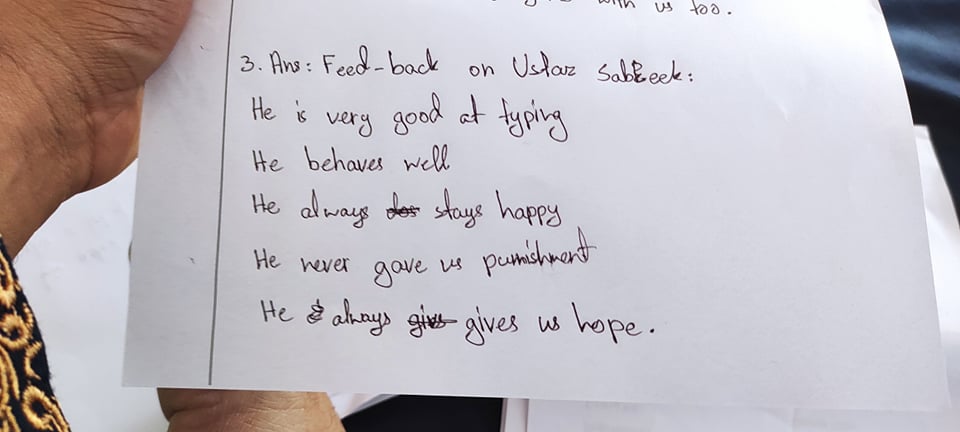 with us too.
3. Ans: Feed-back on Ustaz Sabeek:
He is very good at typing
He behaves well
He always stays happy
He never gave us punnishment
He always gives us hope.